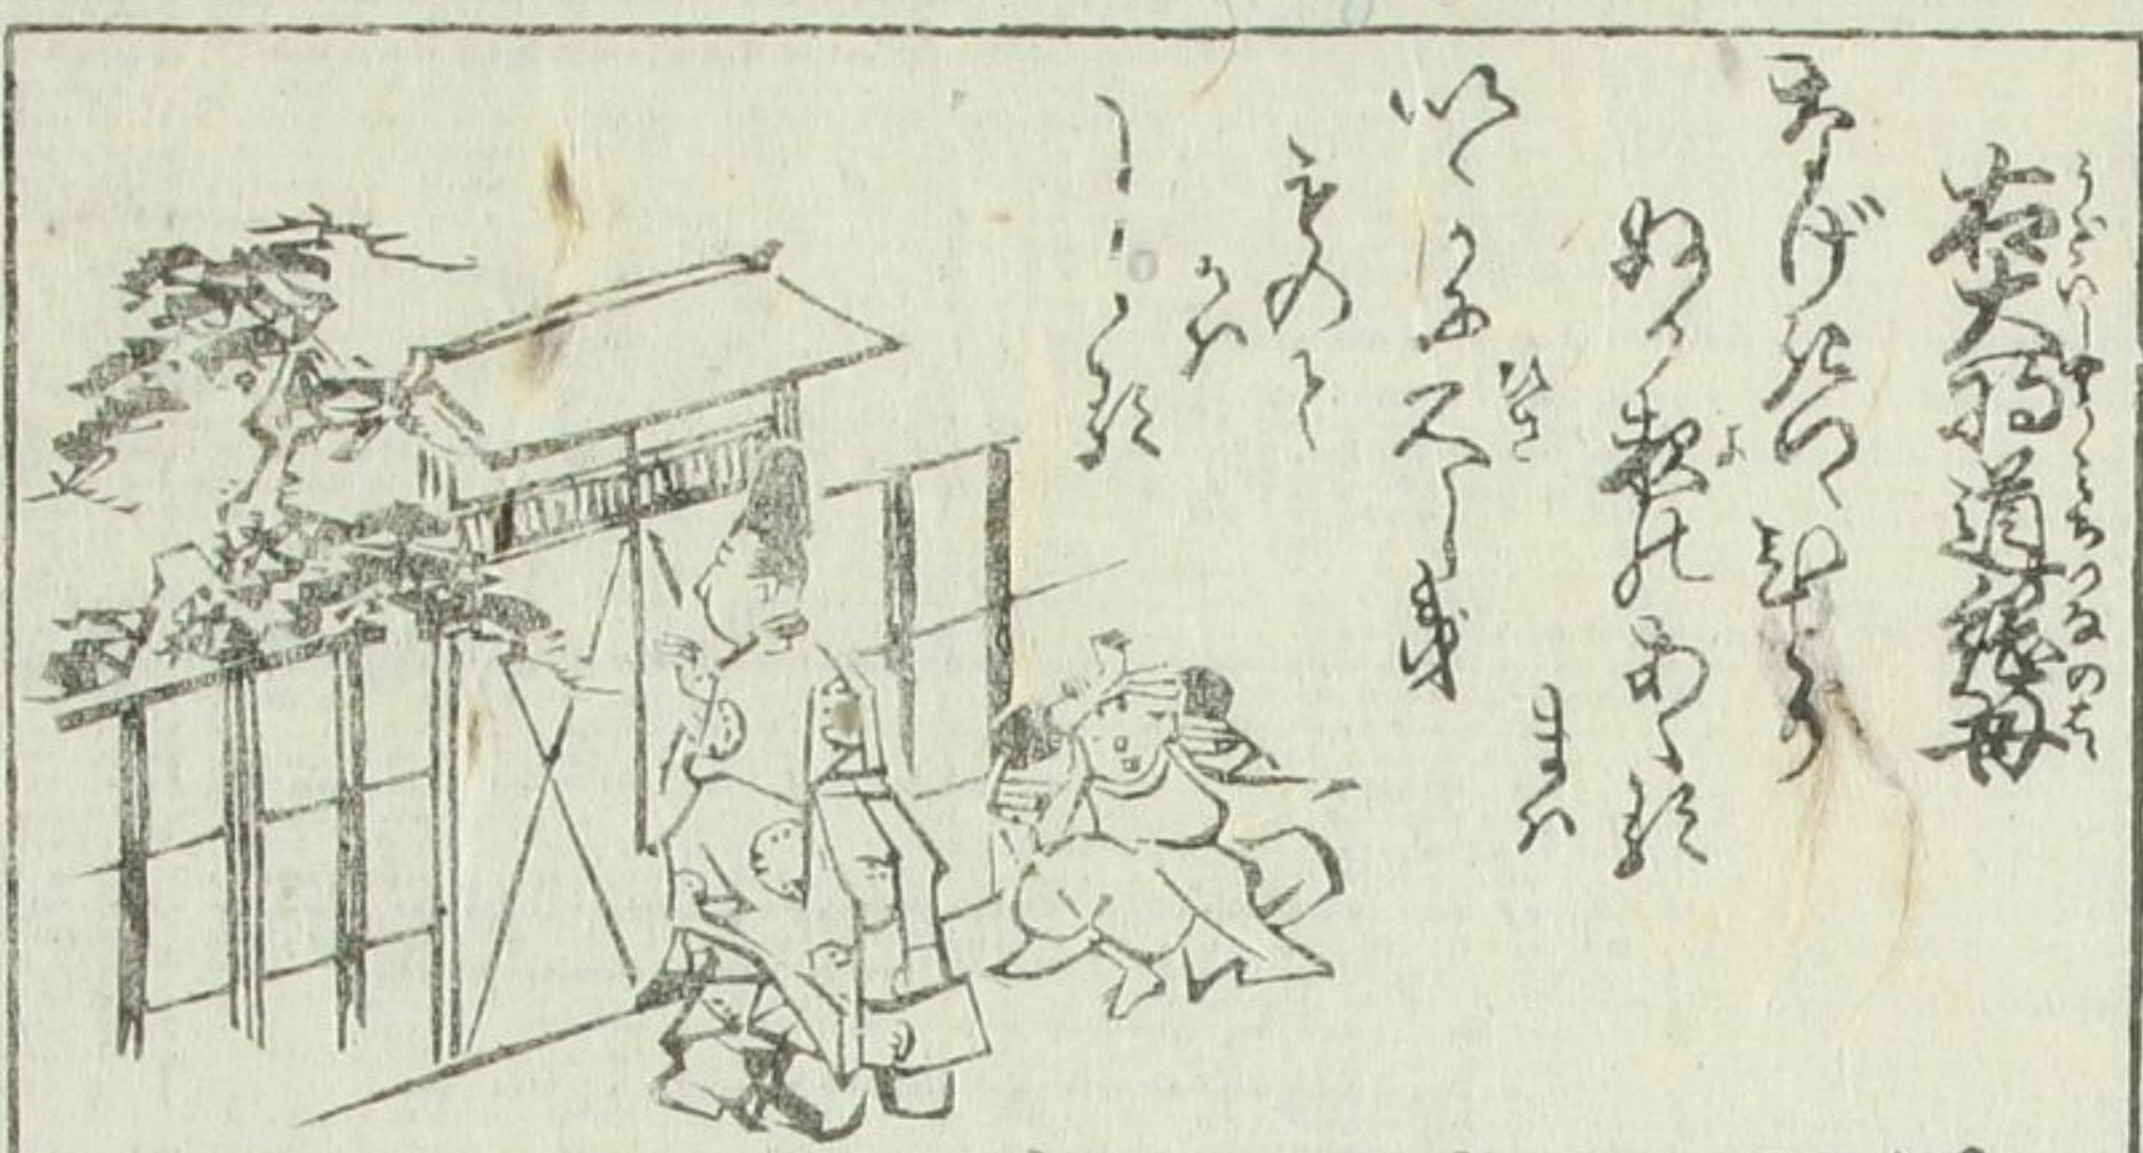 右大将道綱母
うだいしやうみちつなのはゝ
なげきつゝひとり
ぬる夜のあくる
よ
まは
いかに久しき
ひさ
ものと
かは
しる